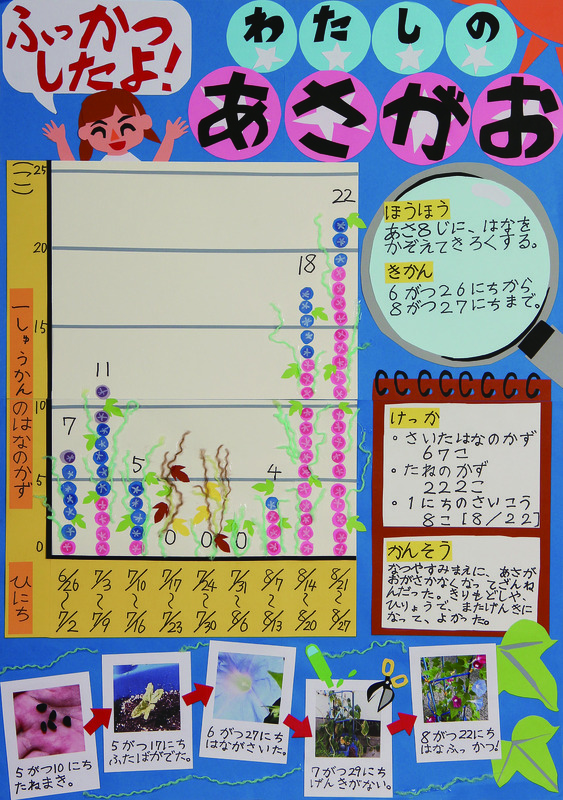 ふっかつ
したよ！
わたしの
あさがお
ほうほう
あさ８じに、はなを
かぞえてきろくする。
きかん
６がつ２６にちから
８がつ２７にちまで。
(こ)
25
20
15
10
5
0
一しゅうかんのはなのかず
7
11
5
0
0
0
4
18
22
ひにち
6/26〜7/2
7/3〜7/9
7/10〜7/16
7/17〜7/23
7/24〜7/30
7/31〜8/6
8/7〜8/13
8/14〜8/20
8/21〜8/27
けっか
・さいたはなのかず
６７こ
・たねのかず
２２２こ
・１にちのさいこう
８こ[８/２２]
かんそう
なつやすみまえに、あさが
おがさかなくなってざんね
んだった。きりもどしや、
ひりょうで、またげんきに
なって、よかった。
５がつ10にち
たねまき。
５がつ17にち
ふたばがでた。
６がつ27にち
はながさいた。
７がつ29にち
げんきがない。
８がつ22にち
はなふっかつ!